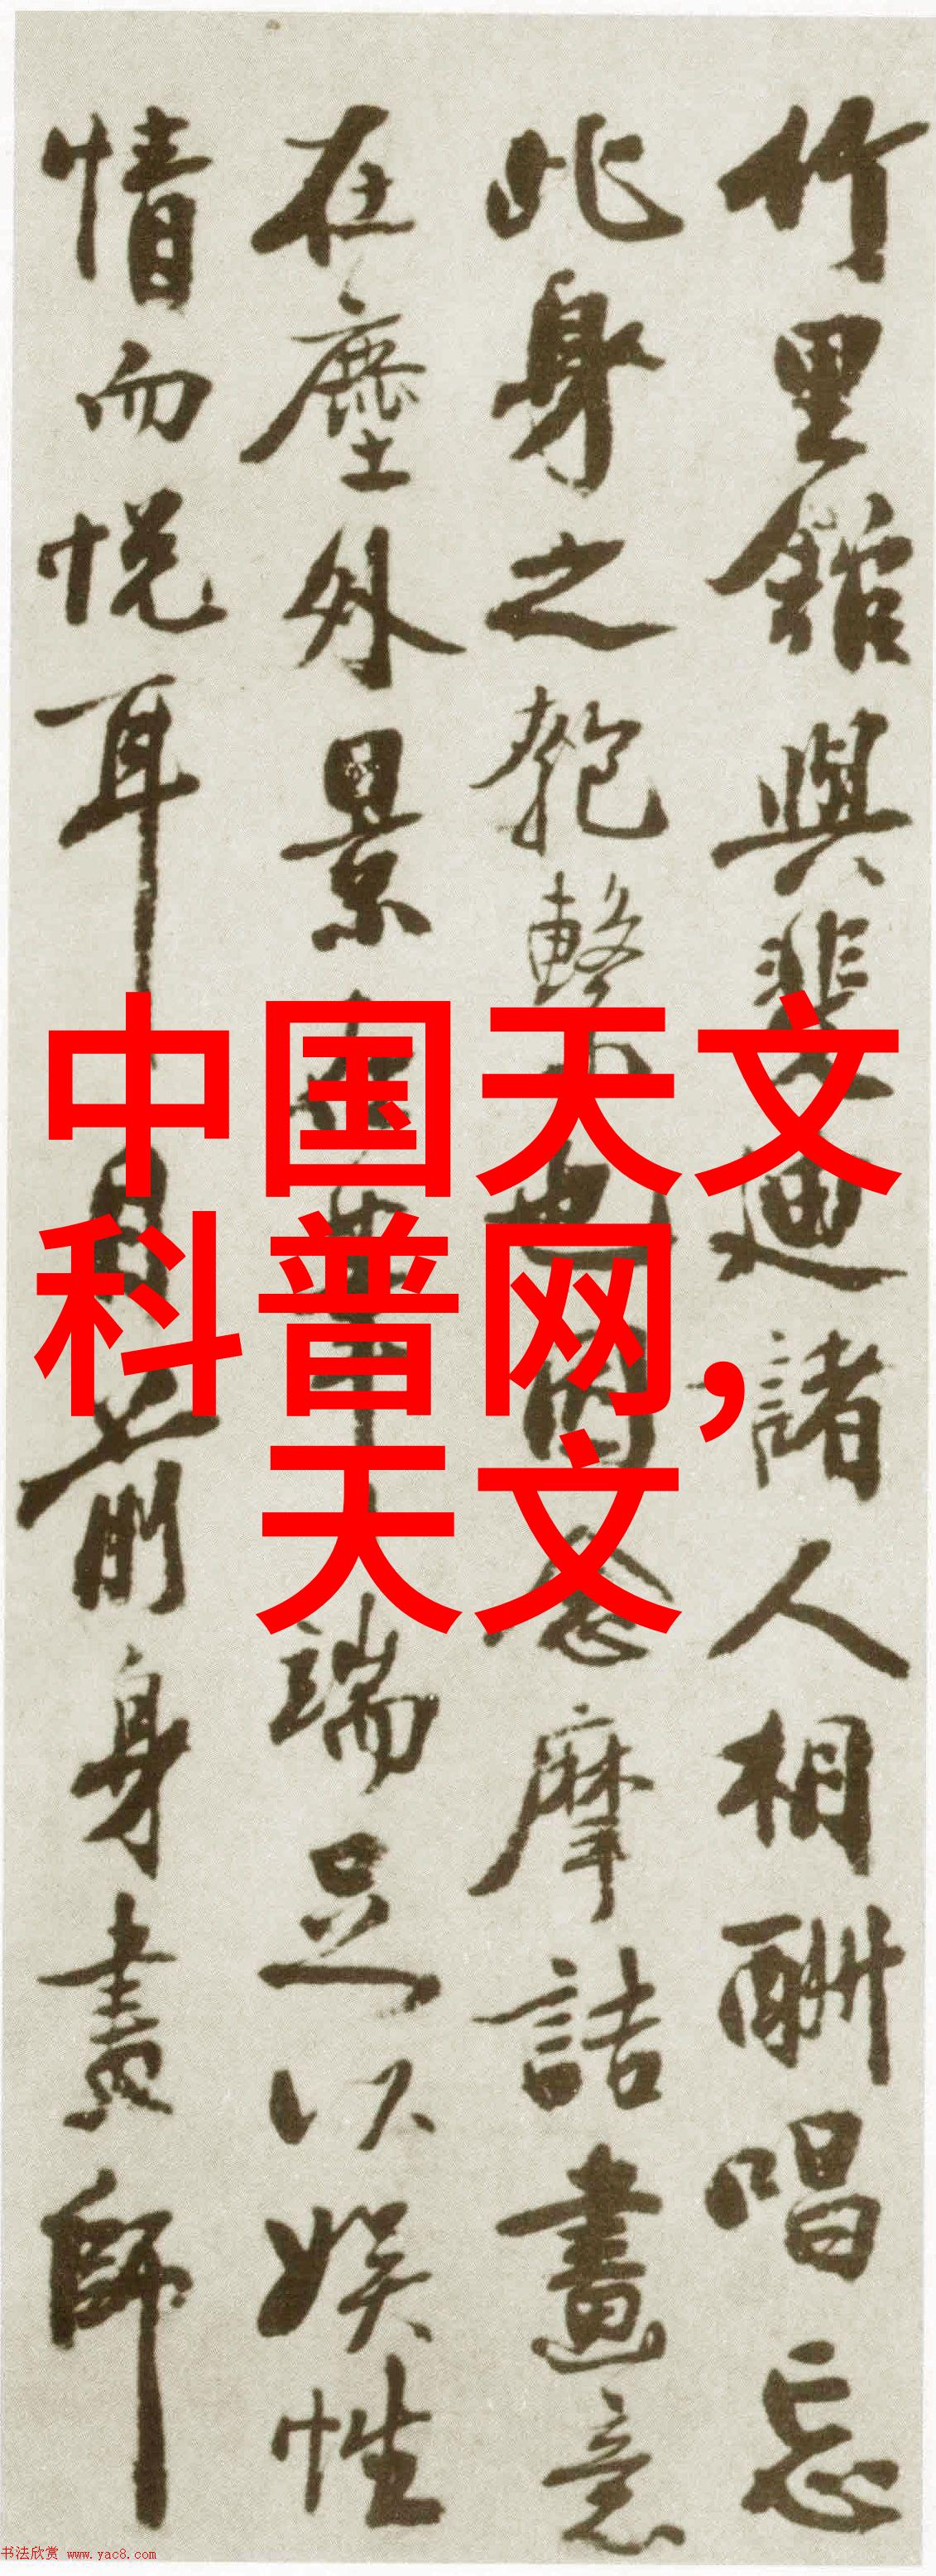 竹里館與裴迪諸人相酬唱忘
此身之匏繫也因念摩詰畫意
在塵外景在筆端足以娛性
情而悅耳目前身畫師
中国天文
科普网,
天文
书法欣赏 www.yac8.com